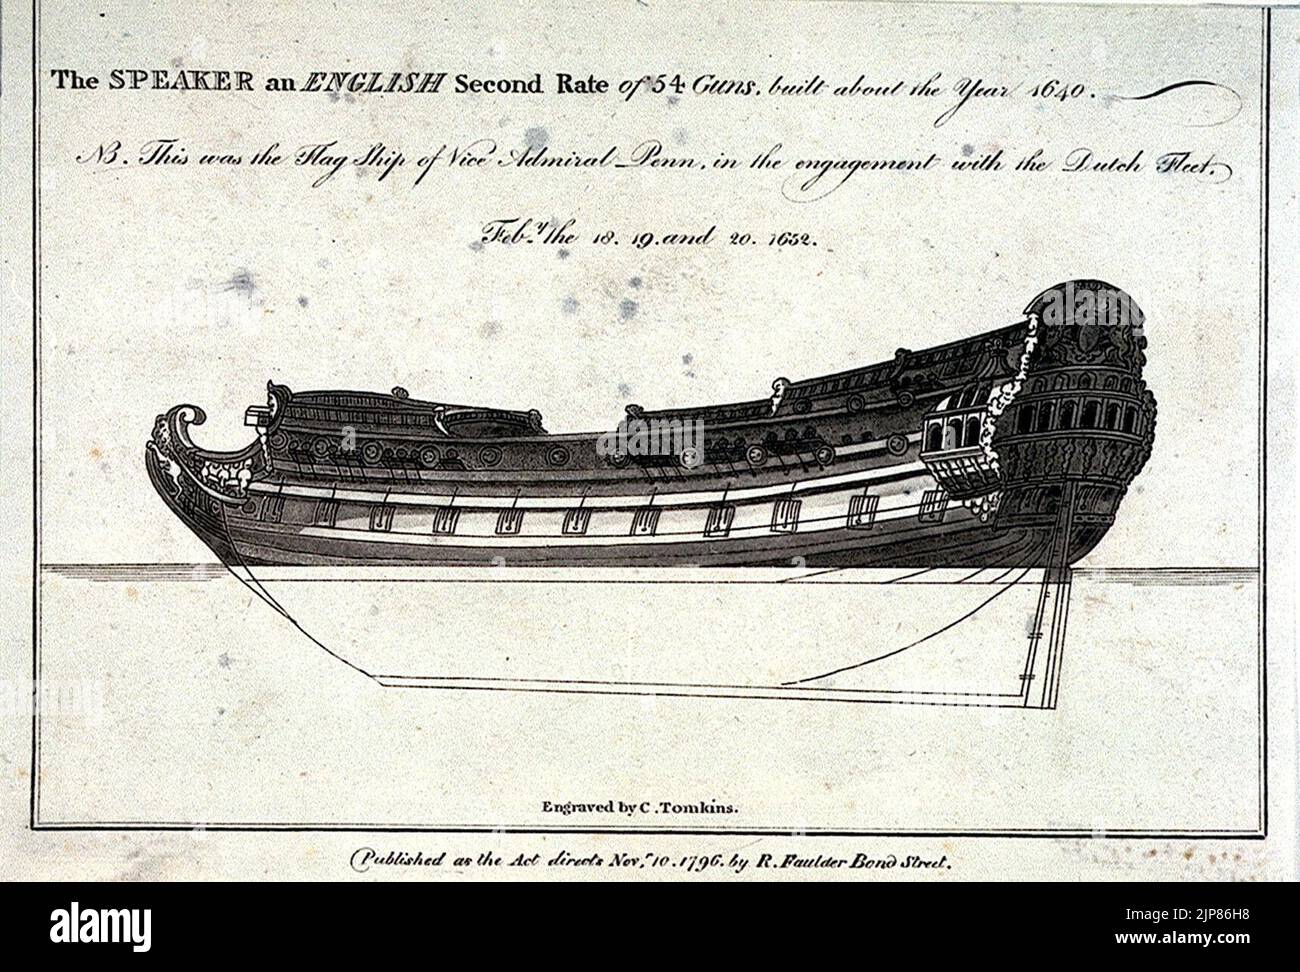 The SPEAKER an ENGLISH Second Rate of 54 Guns, built about the Year 1640.
NB. This was the Flag Ship of Vice Admiral Penn, in the engagement with the Dutch Fleet,
Feb.y the 18. 19. and 20. 1652.
Engraved by C. Tomkins.
Published as the Act directs Nov.r 10. 1796. by R. Faulder Bond Street.
alamy
Image ID: 2JP86H8
www.alamy.com